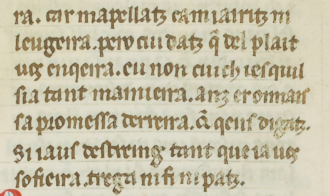 ra. car mapellatz camiairitz ni
leugeira. pero cuidatz q̃ del plait
uos enqeira. eu non cuich iesquil
sia tant mainieira. anz er onnais
sa promessa derreira. Q̃ qeus digatz.
Si iaus destreing tant que ia uos
sofieira. trega ni fi ni patz.